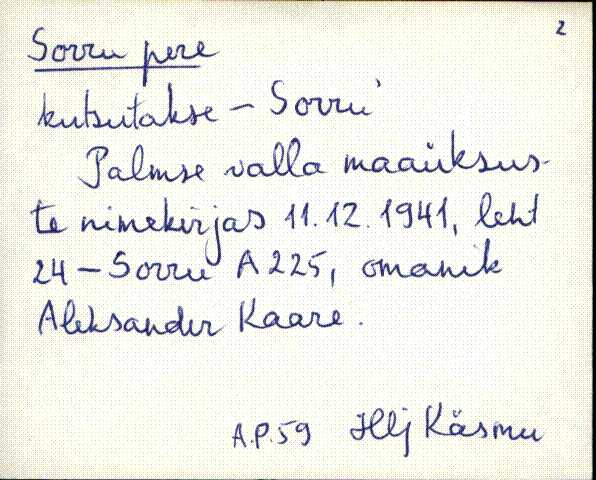 2
Sorru pere
kutsutakse – Sorru'
Palmse valla maaüksus-
te nimekirjas 11.12.1941, leht
24 – Sorru A 225, omanik
Aleksander Kaare.
A.P.59 Hlj Käsmu